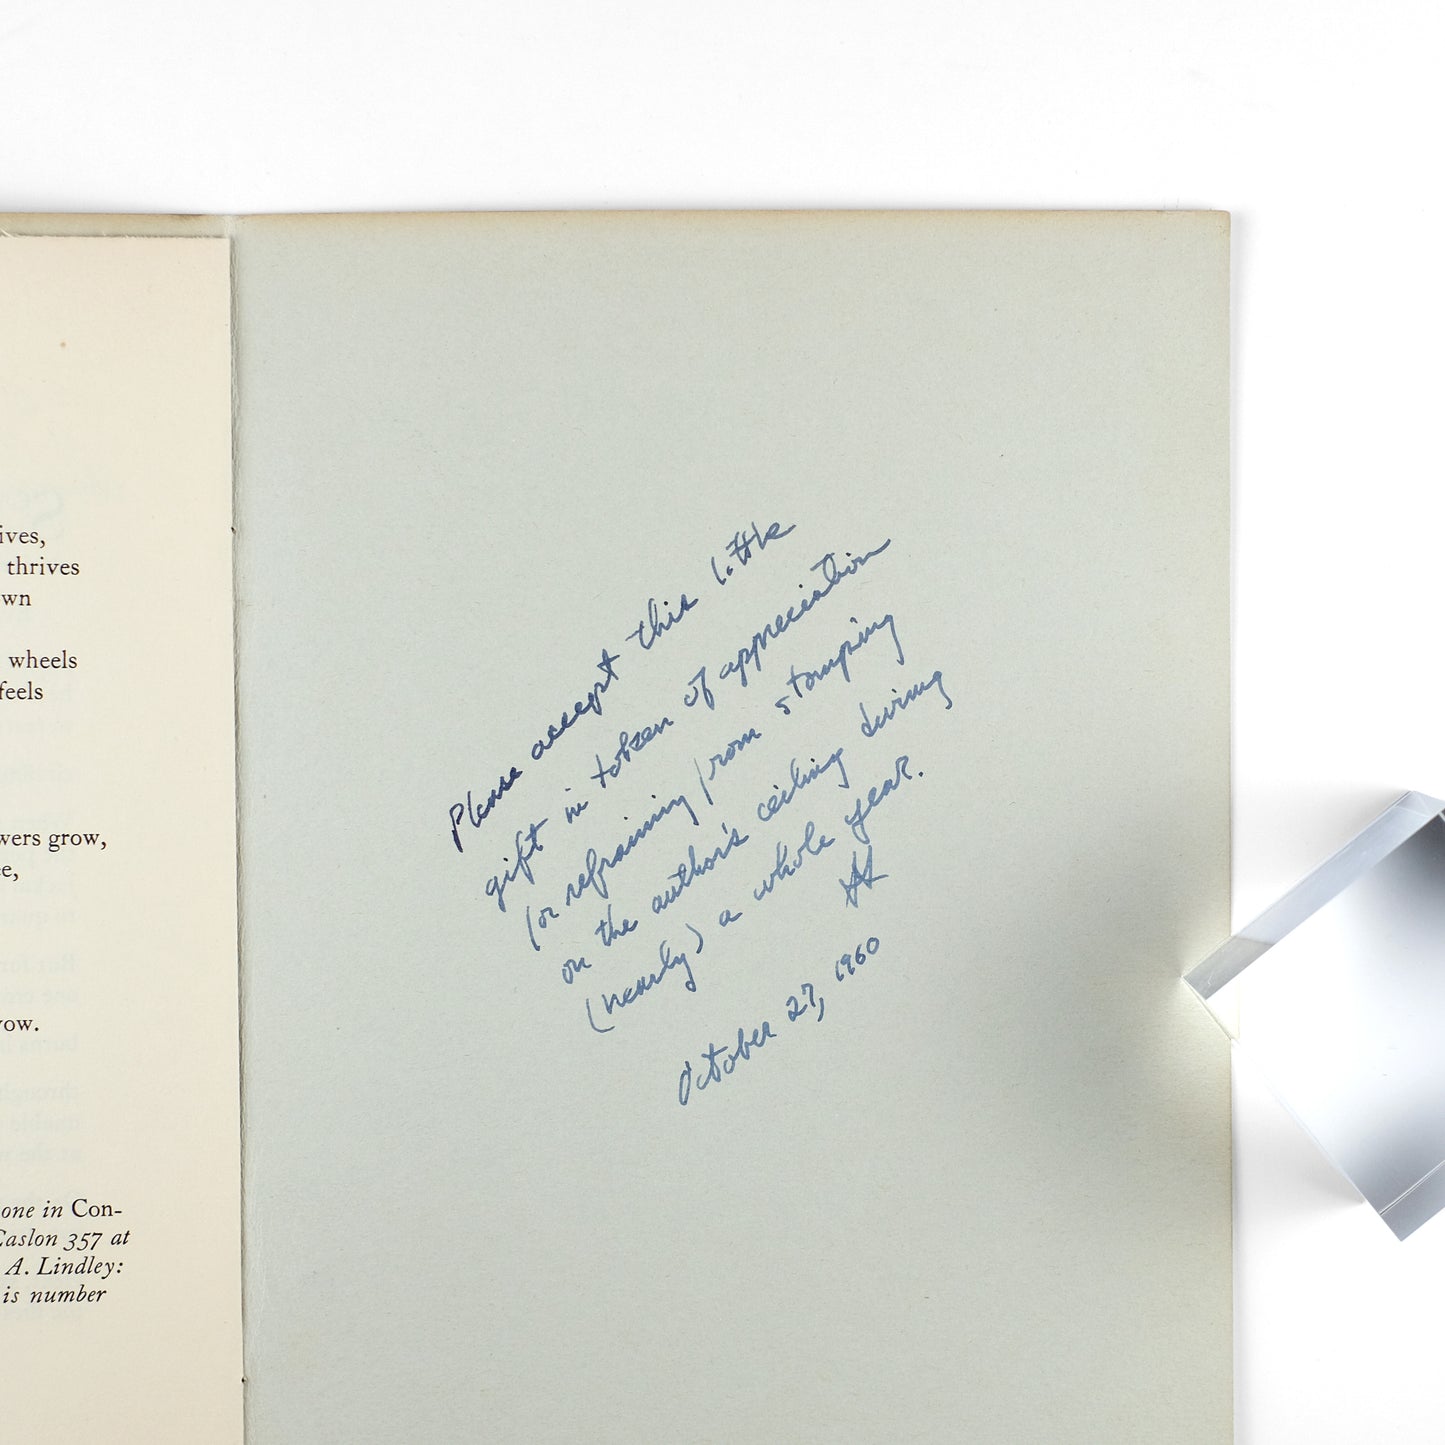 ives,
thrives
wn
wheels
feels
wers grow,
e,
ow.
one in Con-
Caslon 357 at
A. Lindley:
is number
Please accept this little
gift in token of appreciation
for refraining from stomping
on the author's ceiling during
(nearly) a whole year.
October 27, 1960